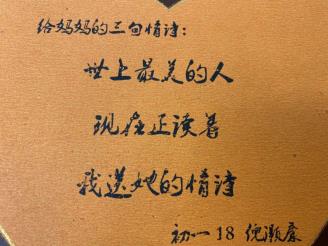 给妈妈的三句情诗：
世上最美的人
现在正读着
我送她的情诗
初一18 倪灏蓁